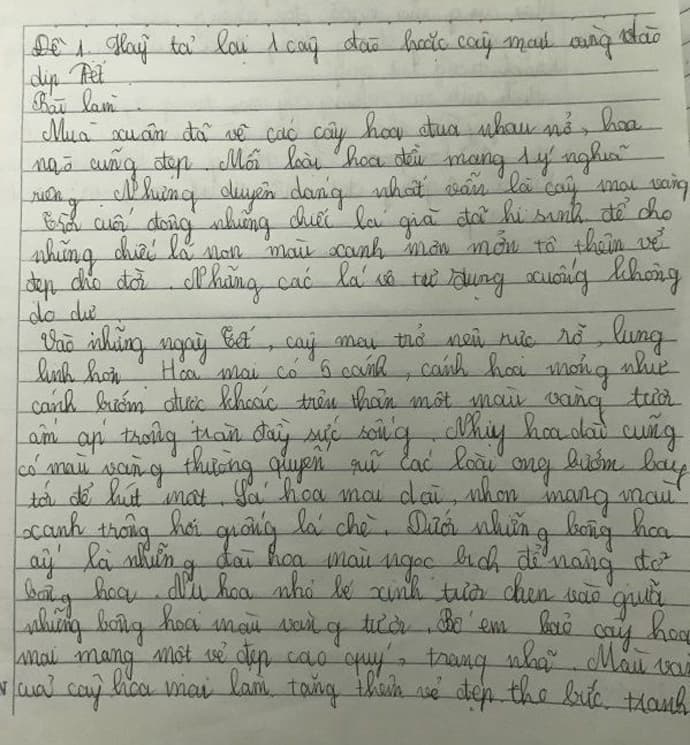 Đề 1. Hãy tả lại 1 cây đào hoặc cây mai vàng vào
dịp Tết
Bài làm.
Mùa xuân đã về các cây hoa đua nhau nở, hoa
nào cũng đẹp. Mỗi loài hoa đều mang 1 ý nghĩa
riêng. Nhưng duyên dáng nhất vẫn là cây mai vàng
Tiết cuối đông những chiếc lá già đã hi sinh để cho
những chiếc lá non màu xanh mơn mởn tô thêm vẻ
đẹp cho đời. Nhằng các lá vô tư rụng xuống không
do dự.
Vào những ngày Tết, cây mai trở nên rực rỡ, lung
linh hơn. Hoa mai có 5 cánh, cánh hoa mỏng như
cánh bướm được khoác trên thân một màu vàng tươi
ấm áp trong tràn đầy sức sống. Nhụy hoa dài cũng
có màu vàng thường quyến rũ các loài ong bướm bay
tới để hút mật. Lá hoa mai dài, nhọn mang màu
xanh trông hơi giống lá chè. Dưới những bông hoa
ấy là những đài hoa màu ngọc bích để nâng đỡ
bông hoa. Nụ hoa nhỏ bé xinh tươi chen vào giữa
những bông hoa màu vàng tươi. Bố em bảo cây hoa
mai mang một vẻ đẹp cao quý, trang nhã. Màu vàn
của cây hoa mai làm tăng thêm vẻ đẹp cho bức tranh